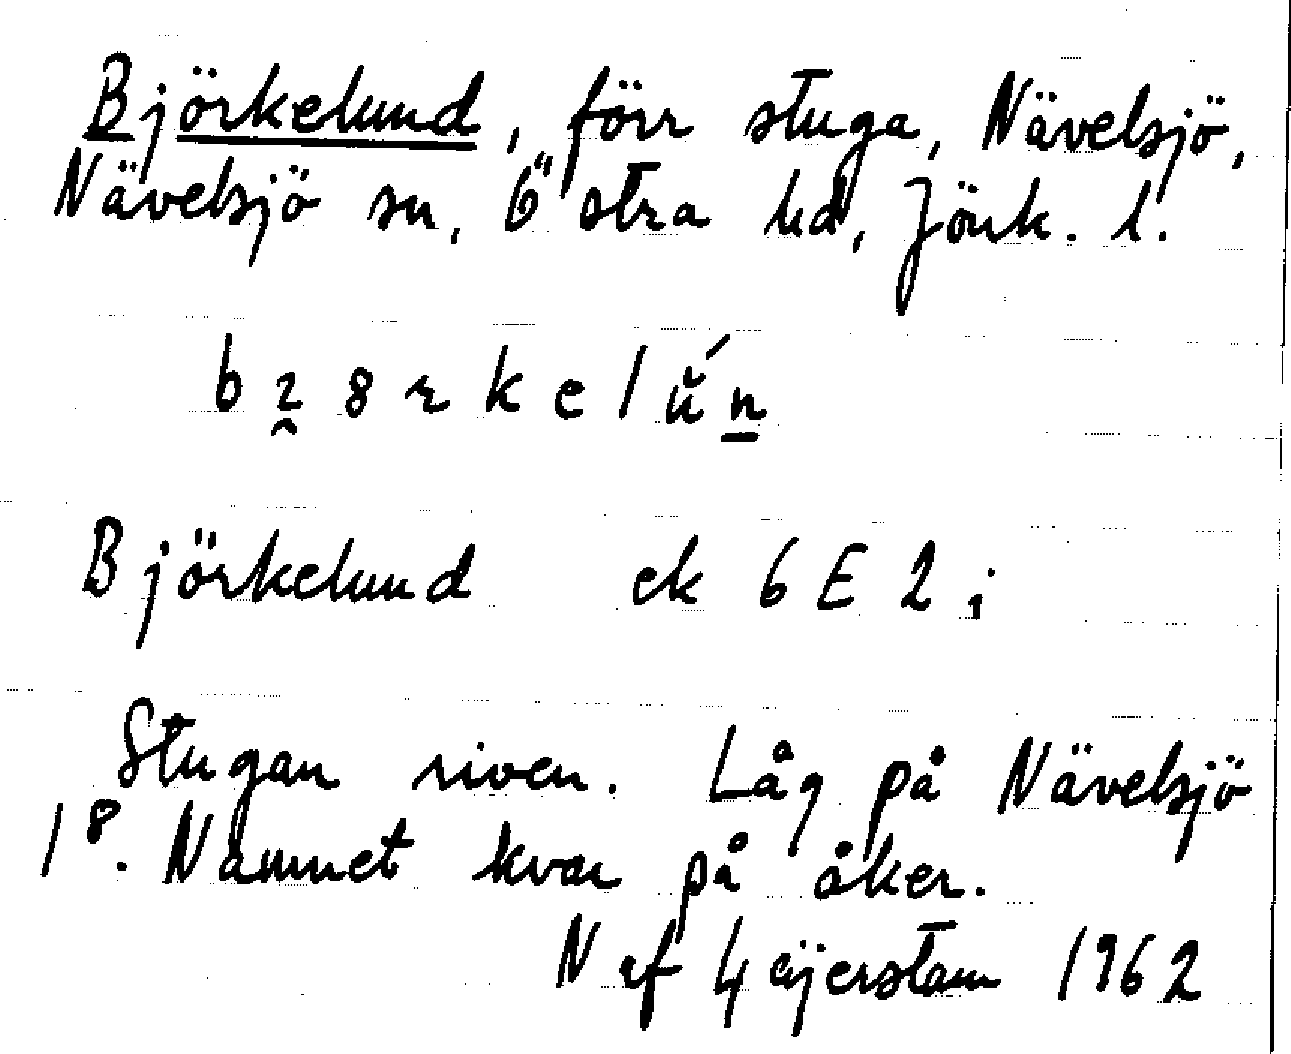 Björkelund, förr stuga, Nävelsjö,
Nävelsjö sn, Östra hd, Jönk. l.
Björkelund ek 6 E 2 i
Stugan riven. Låg på Nävelsjö
1⁸. Namnet kvar på åker.
N af Geijerstam 1962